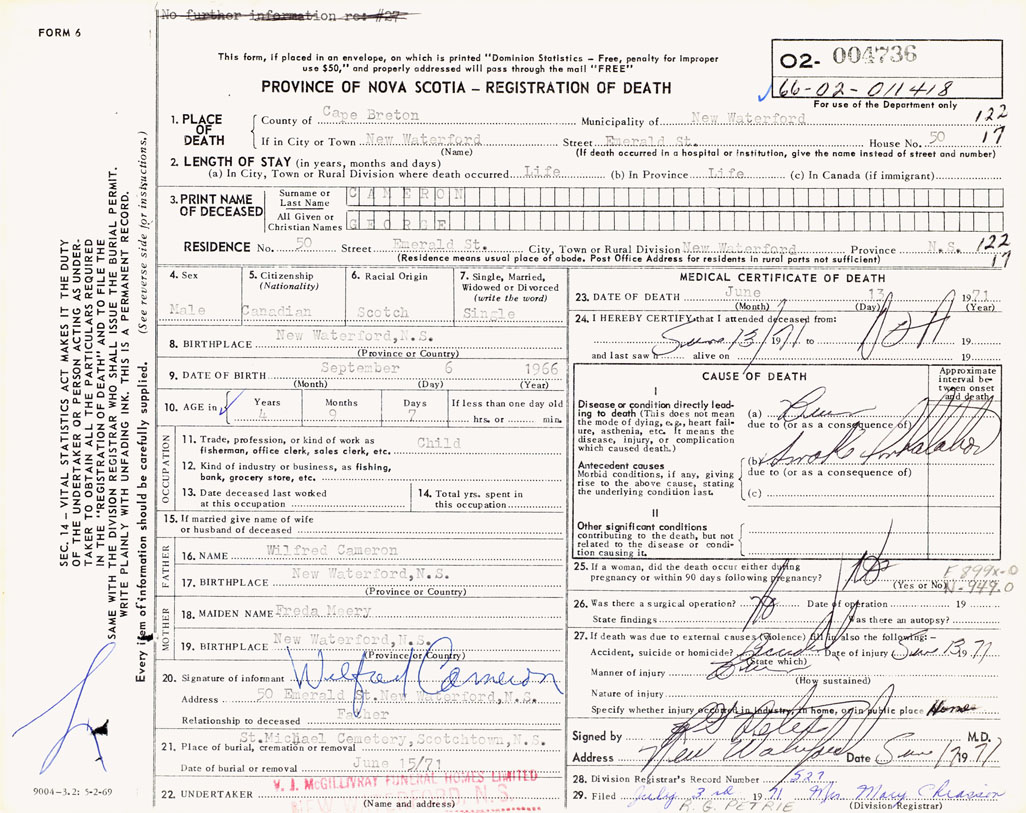 No further information re: #27
FORM 6
This form, if placed in an envelope, on which is printed "Dominion Statistics – Free, penalty for improper
use $50," and properly addressed will pass through the mail "FREE"
O2- 004736
66-02-011418
For use of the Department only
PROVINCE OF NOVA SCOTIA – REGISTRATION OF DEATH
1. PLACE OF DEATH
County of Cape Breton Municipality of New Waterford 122
If in City or Town New Waterford Street Emerald St. House No. 50 17
(Name) (If death occurred in a hospital or institution, give the name instead of street and number)
2. LENGTH OF STAY (in years, months and days)
(a) In City, Town or Rural Division where death occurred Life (b) In Province Life (c) In Canada (if immigrant)
3. PRINT NAME OF DECEASED
Surname or Last Name CAMERON
All Given or Christian Names GEORGE
RESIDENCE No. 50 Street Emerald St. City, Town or Rural Division New Waterford Province N.S. 122
(Residence means usual place of abode. Post Office Address for residents in rural parts not sufficient) 17
4. Sex
Male
5. Citizenship
(Nationality)
Canadian
6. Racial Origin
Scotch
7. Single, Married,
Widowed or Divorced
(write the word)
Single
8. BIRTHPLACE New Waterford, N.S.
(Province or Country)
9. DATE OF BIRTH September 6 1966
(Month) (Day) (Year)
10. AGE in
Years 4
Months 9
Days 7
If less than one day old
hrs. or min.
OCCUPATION
11. Trade, profession, or kind of work as Child
fisherman, office clerk, sales clerk, etc.
12. Kind of industry or business, as fishing,
bank, grocery store, etc.
13. Date deceased last worked
at this occupation
14. Total yrs. spent in
this occupation
15. If married give name of wife
or husband of deceased
FATHER
16. NAME Wilfred Cameron
17. BIRTHPLACE New Waterford, N.S.
(Province or Country)
MOTHER
18. MAIDEN NAME Freda
19. BIRTHPLACE New Waterford, N.S.
(Province or Country)
20. Signature of informant Wilfred Cameron
Address 50 Emerald St. New Waterford, N.S.
Relationship to deceased Father
21. Place of burial, cremation or removal St. Michael Cemetery, Scotchtown, N.S.
Date of burial or removal June 15/71
22. UNDERTAKER V. J. McGILLIVRAY FUNERAL HOMES LIMITED
NEW WATERFORD, N. S.
(Name and address)
MEDICAL CERTIFICATE OF DEATH
23. DATE OF DEATH June 13 1971
(Month) (Day) (Year)
24. I HEREBY CERTIFY that I attended deceased from:
June 13/ 1971 to 19
and last saw h alive on 19
CAUSE OF DEATH
Approximate
interval be-
tween onset
and death
I
Disease or condition directly lead-
ing to death (This does not mean
the mode of dying, e.g., heart fail-
ure, asthenia, etc. It means the
disease, injury, or complication
which caused death.)
(a) Burn
due to (or as a consequence of)
Antecedent causes
Morbid conditions, if any, giving
rise to the above cause, stating
the underlying condition last.
(b) Smoke Inhalation
due to (or as a consequence of)
(c)
II
Other significant conditions
contributing to the death, but not
related to the disease or condi-
tion causing it.
25. If a woman, did the death occur either during
pregnancy or within 90 days following pregnancy? No
(Yes or No)
E 899X-0
N-949.0
26. Was there a surgical operation? No Date of operation 19
State findings Was there an autopsy?
27. If death was due to external causes (violence) fill in also the following:–
Accident, suicide or homicide? Date of injury June 13 1971
(State which)
Manner of injury Burn
(How sustained)
Nature of injury
Specify whether injury occurred in industry, in home, or in public place Home
Signed by M.D.
Address New Waterford Date June 1971
28. Division Registrar's Record Number 527
29. Filed July 3rd 1971 Mrs Mary Chiasson
R. G. PETRIE (Division Registrar)
SEC. 14 – VITAL STATISTICS ACT MAKES IT THE DUTY
OF THE UNDERTAKER OR PERSON ACTING AS UNDER-
TAKER TO OBTAIN ALL THE PARTICULARS REQUIRED
IN THE "REGISTRATION OF DEATH" AND TO FILE THE
SAME WITH THE DIVISION REGISTRAR WHO SHALL ISSUE THE BURIAL PERMIT.
WRITE PLAINLY WITH UNFADING INK. THIS IS A PERMANENT RECORD.
Every item of information should be carefully supplied. (See reverse side for instructions.)
9004-3.2: 5-2-69